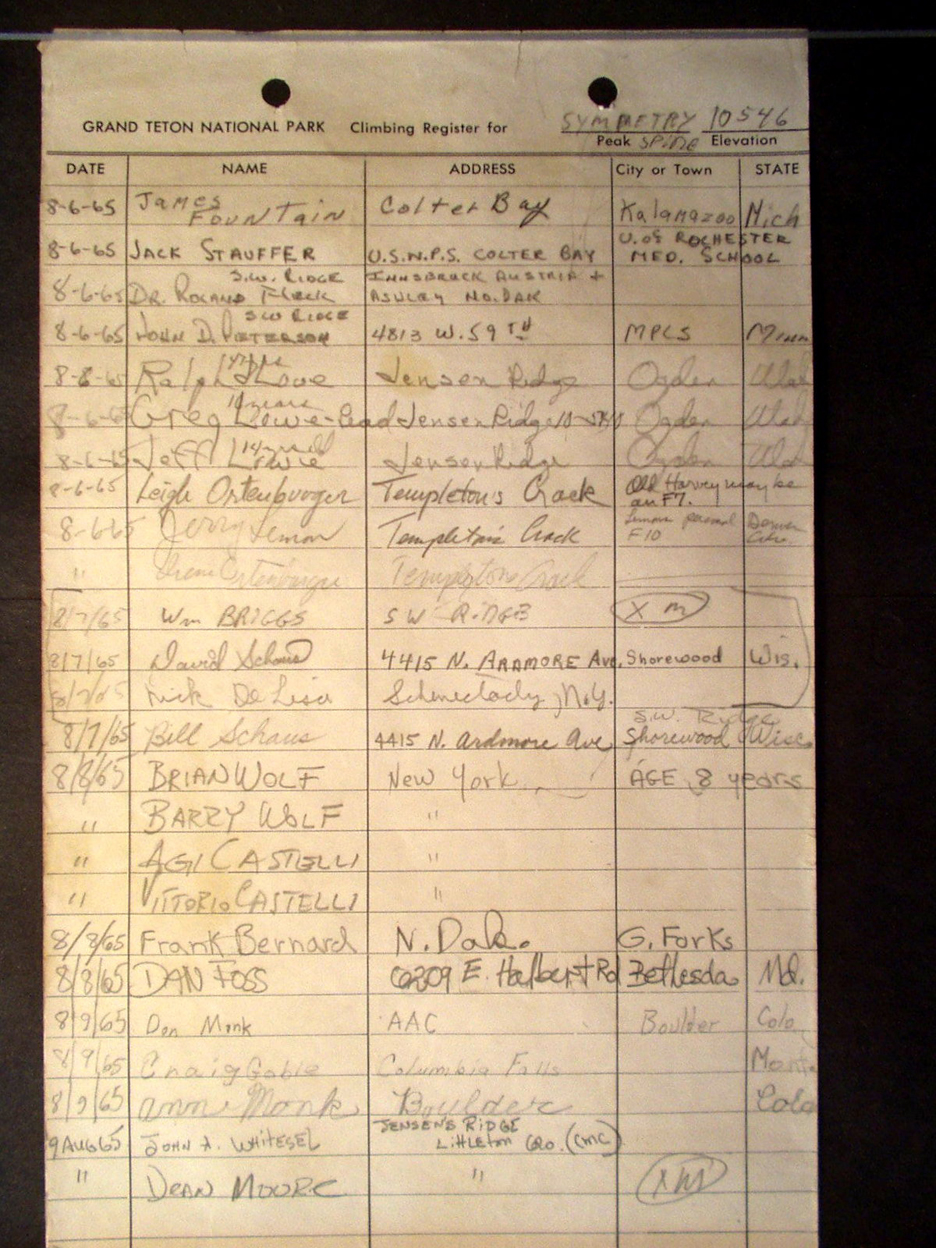 SYMMETRY 10546
GRAND TETON NATIONAL PARK Climbing Register for
Peak SPIRE Elevation
DATE NAME ADDRESS City or Town STATE
8-6-65 James Fountain Colter Bay Kalamazoo Mich
8-6-65 JACK STAUFFER U.S.N.P.S. COLTER BAY U. of ROCHESTER MED. SCHOOL
S.W. RIDGE INNSBRUCK AUSTRIA +
8-6-65 DR. ROLAND Fleck ASHLEY NO. DAK
SW RIDGE
8-6-65 JOHN D. PETERSON 4813 W. 59TH MPLS Minn
8-8-65 Ralph Lowe Jensen Ridge Ogden Utah
8-6-65 Greg Lowe-lead Jensen Ridge Ogden Utah
8-6-65 Jeff Lowe Jensen Ridge Ogden Utah
8-6-65 Leigh Ortenburger Templeton's Crack Old Harvey may be an F7.
8-6-65 Jerry Lemon Templeton's Crack Lemon's personal F10 Denver Colo.
" Irene Ortenburger Templetons Crack
8/7/65 Wm BRIGGS SW RIDGE X M
8/7/65 David Schaus 4415 N. ARDMORE Ave. Shorewood Wis.
8/7/65 Rick De Lisa Schenectady, N.Y.
S.W. Ridge
8/7/65 Bill Schaus 4415 N. Ardmore Ave Shorewood Wisc
8/8/65 BRIAN WOLF New York AGE 8 years
" BARRY WOLF "
" AGI CASTELLI "
" VITTORIO CASTELLI "
8/8/65 Frank Bernard N. Dak. G. Forks
8/8/65 DAN FOSS 6209 E. Halbert Rd Bethesda Md.
8/9/65 Don Monk AAC Boulder Colo
8/9/65 Craig Gable Columbia Falls Mont.
8/9/65 Ann Monk Boulder Colo
JENSEN'S RIDGE
9 AUG 65 JOHN A. WHITESEL Littleton Colo. (CMC)
" DEAN MOORE " X M